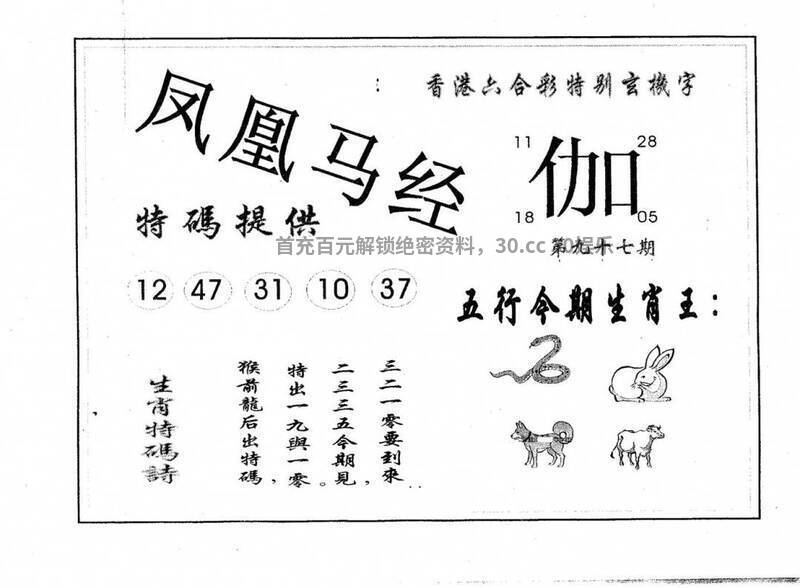 凤凰马经
香港六合彩特别玄機字
11 28
伽
18 05
第九十七期
特碼提供
首充百元解锁绝密资料，30.cc
12 47 31 10 37
五行今期生肖王：
三二一零要到來，
二三三五今期見。
特出一九與一零，
猴前龍后出特碼，
生肖特碼詩